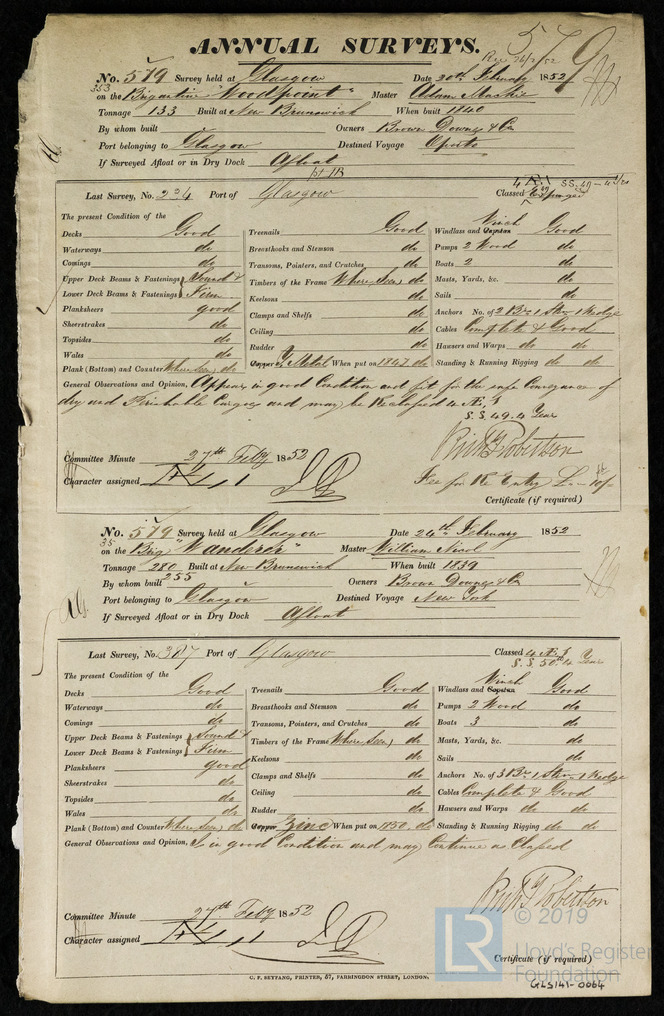 579
ANNUAL SURVEYS.
Rec 26/2/52
No. 579 Survey held at Glasgow Date 20th February 1852
353 on the Brigantine "Woodpoint" Master Adam Mackie
Tonnage 133 Built at New Brunswick When built 1840
By whom built Owners Brown Downes & Co
Port belonging to Glasgow Destined Voyage Oporto
If Surveyed Afloat or in Dry Dock Afloat
Last Survey, No. 234 Port of Glasgow Classed
The present Condition of the
Decks Good Treenails Good Windlass and Capstan Winch Good
Waterways do Breasthooks and Stemson do Pumps 2 Wood do
Comings do Transoms, Pointers, and Crutches do Boats 2 do
Upper Deck Beams & Fastenings Sound & Timbers of the Frame Where seen do Masts, Yards, &c. do
Lower Deck Beams & Fastenings Firm Keelsons do Sails do
Planksheers good Clamps and Shelfs do Anchors No. of 2 Br 1 Strm 1 Kedge
Sheerstrakes do Ceiling do Cables Complete & Good
Topsides do Rudder do Hawsers and Warps do do
Wales do
Plank (Bottom) and Counter Where seen do Copper Y Metal When put on 1847 do Standing & Running Rigging do do
General Observations and Opinion, Appears in good Condition and fit for the safe Conveyance of
dry and Perishable Cargoes and may be Reclassed 4 Æ.1
S.S. 49. 4 Years
Committee Minute 27th Feby 1852
Character assigned Æ 1
Fee for Re Entry £ - 10/-
Certificate (if required)
No. 579 Survey held at Glasgow Date 24th February 1852
35 on the Brig "Wanderer" Master William Nicol
Tonnage 280 Built at New Brunswick When built 1839
255
By whom built Owners Brown Downes & Co
Port belonging to Glasgow Destined Voyage New York
If Surveyed Afloat or in Dry Dock Afloat
Last Survey, No. 307 Port of Glasgow Classed 4 Æ 1
S.S. 50 4 Years
The present Condition of the
Decks Good Treenails Good Windlass and Capstan Winch Good
Waterways do Breasthooks and Stemson do Pumps 2 Wood do
Comings do Transoms, Pointers, and Crutches do Boats 3 do
Upper Deck Beams & Fastenings Sound & Timbers of the Frame Where seen do Masts, Yards, &c. do
Lower Deck Beams & Fastenings Firm Keelsons do Sails do
Planksheers good Clamps and Shelfs do Anchors No. of 3 Br 1 Strm 1 Kedge
Sheerstrakes do Ceiling do Cables Complete & Good
Topsides do Rudder do Hawsers and Warps do do
Wales do
Plank (Bottom) and Counter Where seen do Copper Zinc When put on 1850 do Standing & Running Rigging do do
General Observations and Opinion, Is in good Condition and may Continue as Classed
Committee Minute 27th Feby 1852
Character assigned Æ 1
Certificate (if required)
C. F. SEYFANG, PRINTER, 57, FARRINGDON STREET, LONDON.
LR © 2019
Lloyd's Register
Foundation
GLS141-0064